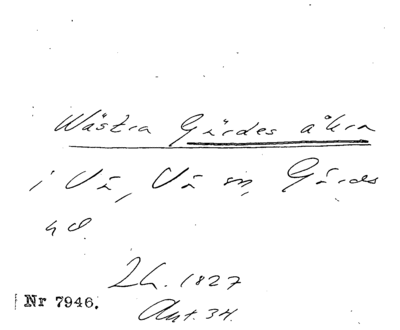 Wästra Gärdes åkra
i Vä, Vä sn, Gärds
hd.
Lh. 1827
Akt. 34.
Nr 7946.